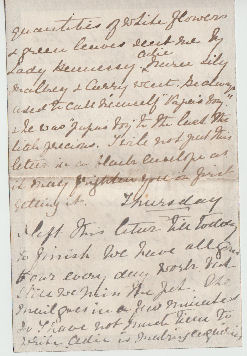 quantities of white flowers
& green leaves sent me by
Lady Hennessy.
& Curry went. He always
used to call himself "Papa's Boy"
& he was "Papa's Boy" to the last the
little precious. I will not put this
letter in a black envelope as
it may frighten you on first
getting it.
Thursday
I left this letter till today
to finish We have all gone
to our every day work but
still we miss the pet. The
mail goes in a few minutes
so I have not much time to
write